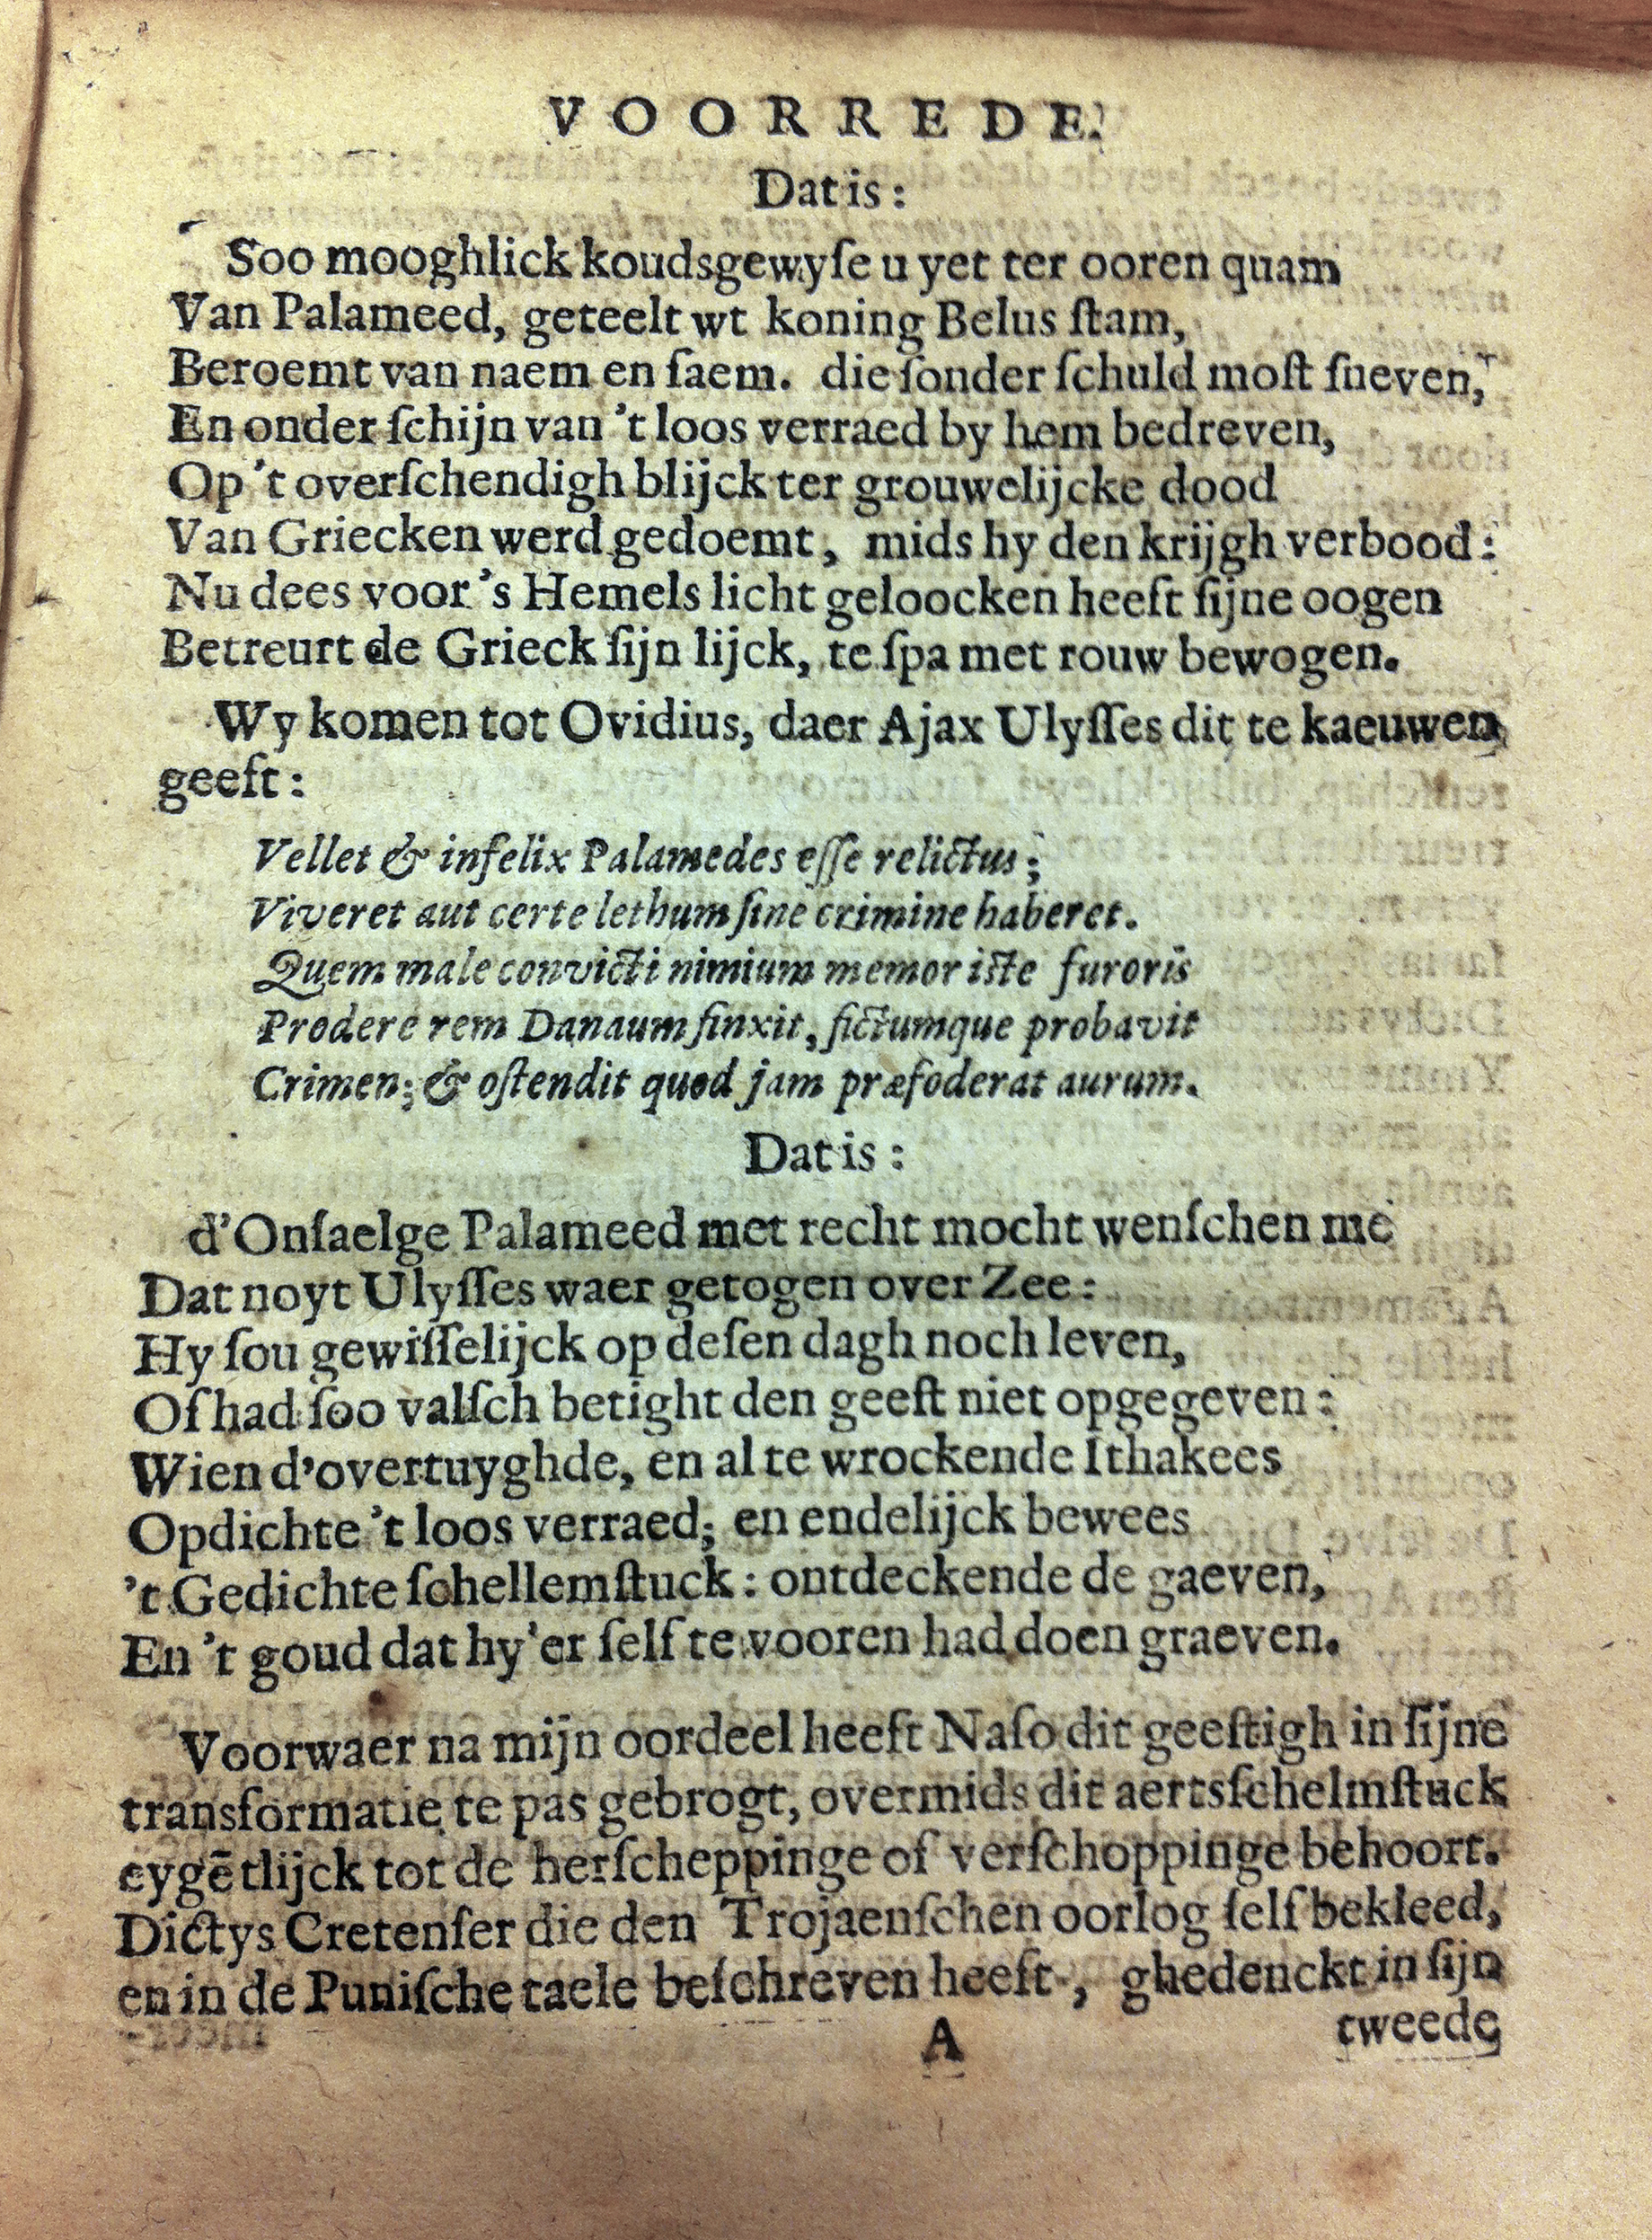 VOORREDE.
Dat is:
Soo mooghlick koudsgewyſe u yet ter ooren quam
Van Palameed, geteelt wt koning Belus ſtam,
Beroemt van naem en faem. die ſonder ſchuld moſt ſneven,
En onder ſchijn van 't loos verraed by hem bedreven,
Op 't overſchendigh blijck ter grouwelijcke dood
Van Griecken werd gedoemt, mids hy den krijgh verbood:
Nu dees voor 's Hemels licht geloocken heeft ſijne oogen
Betreurt de Grieck ſijn lijck, te ſpa met rouw bewogen.
Wy komen tot Ovidius, daer Ajax Ulyſſes dit te kaeuwen
geeft:
Vellet & infelix Palamedes eſſe relictus;
Viveret aut certe lethum ſine crimine haberet.
Quem male convicti nimium memor iſte furoris
Prodere rem Danaum finxit, fictumque probavit
Crimen; & oſtendit quod jam præfoderat aurum.
Dat is:
d'Onſaelge Palameed met recht mocht wenſchen me
Dat noyt Ulyſſes waer getogen over Zee:
Hy ſou gewiſſelijck op deſen dagh noch leven,
Of had ſoo valſch betight den geeſt niet opgegeven:
Wien d'overtuyghde, en al te wrockende Ithakees
Opdichte 't loos verraed; en endelijck bewees
't Gedichte ſchellemſtuck: ontdeckende de gaeven,
En 't goud dat hy'er ſelf te vooren had doen graeven.
Voorwaer na mijn oordeel heeft Naſo dit geeſtigh in ſijne
transformatie te pas gebrogt, overmids dit aertsſchelmſtuck
eygētlijck tot de herſcheppinge of verſchoppinge behoort.
Dictys Cretenſer die den Trojaenſchen oorlog ſelf bekleed,
en in de Puniſche taele beſchreven heeft, ghedenckt in ſijn
A tweede